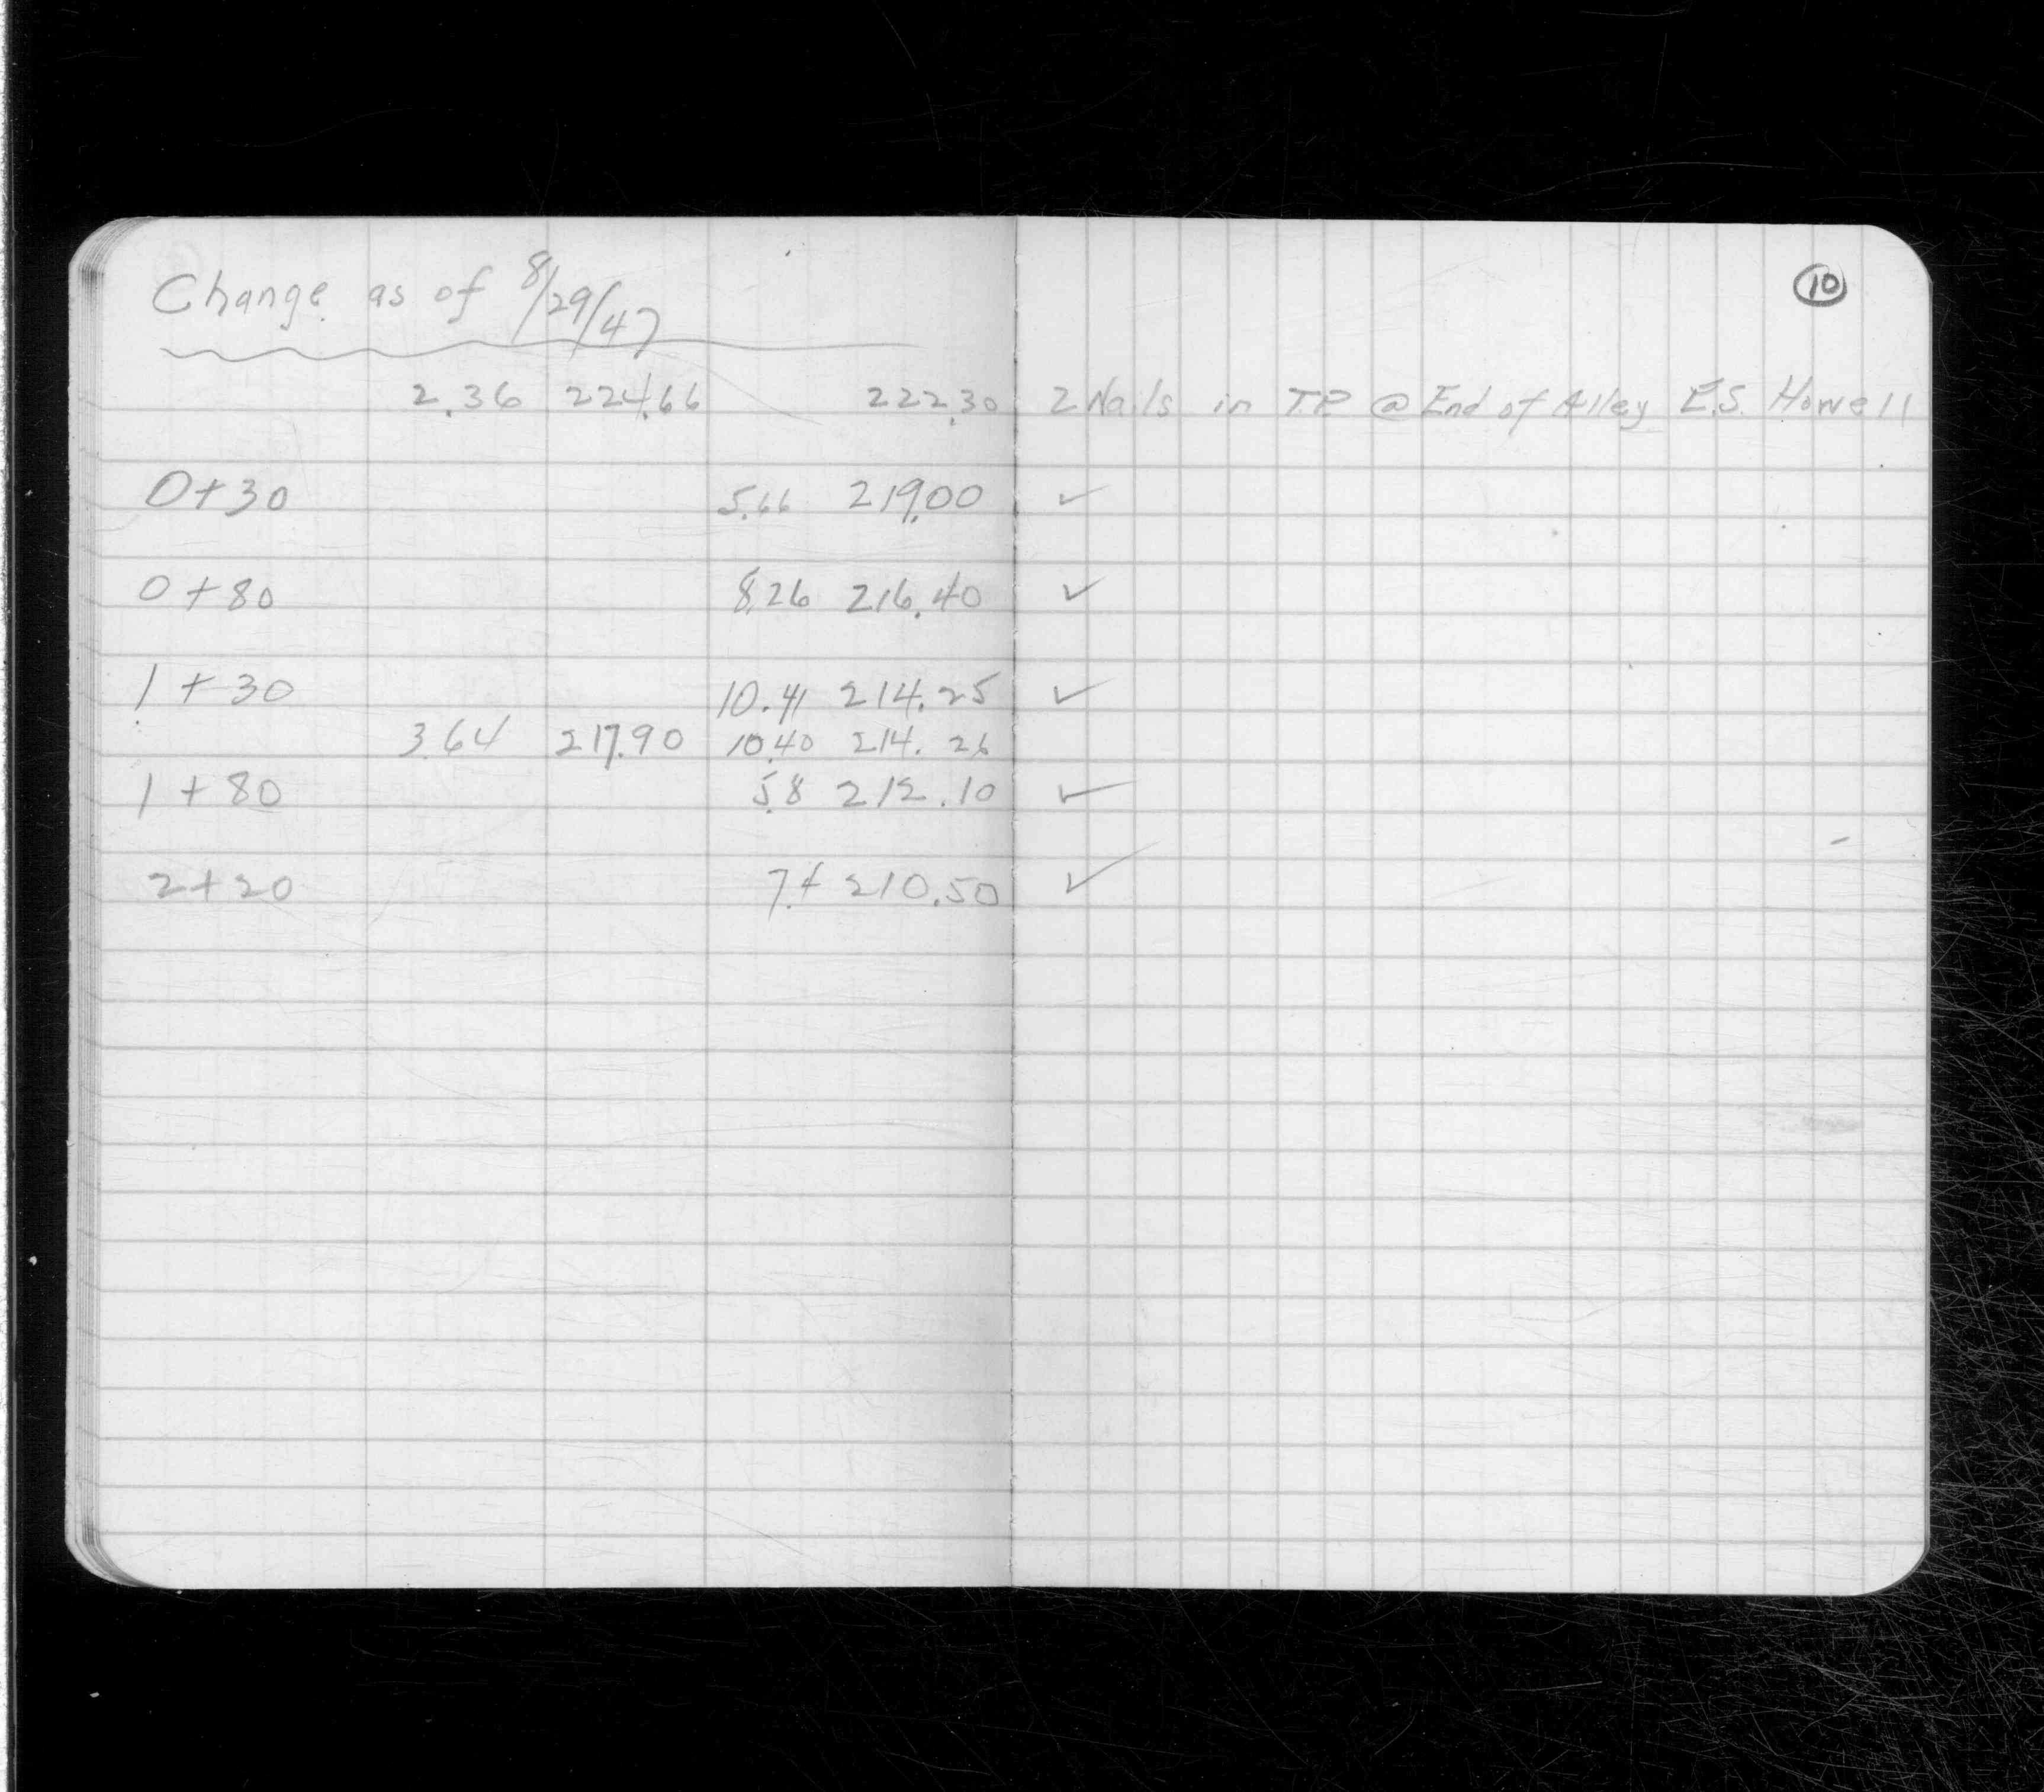 10
Change as of 8/29/47
2.36 224.66 222.30 2 Nails in T.P. @ End of Alley E.S. Howell
0+30 5.66 219.00 ✓
0+80 8.26 216.40 ✓
1+30 10.41 214.25 ✓
3.64 217.90 10.40 214.26
1+80 5.8 212.10 ✓
2+20 7.4 210.50 ✓